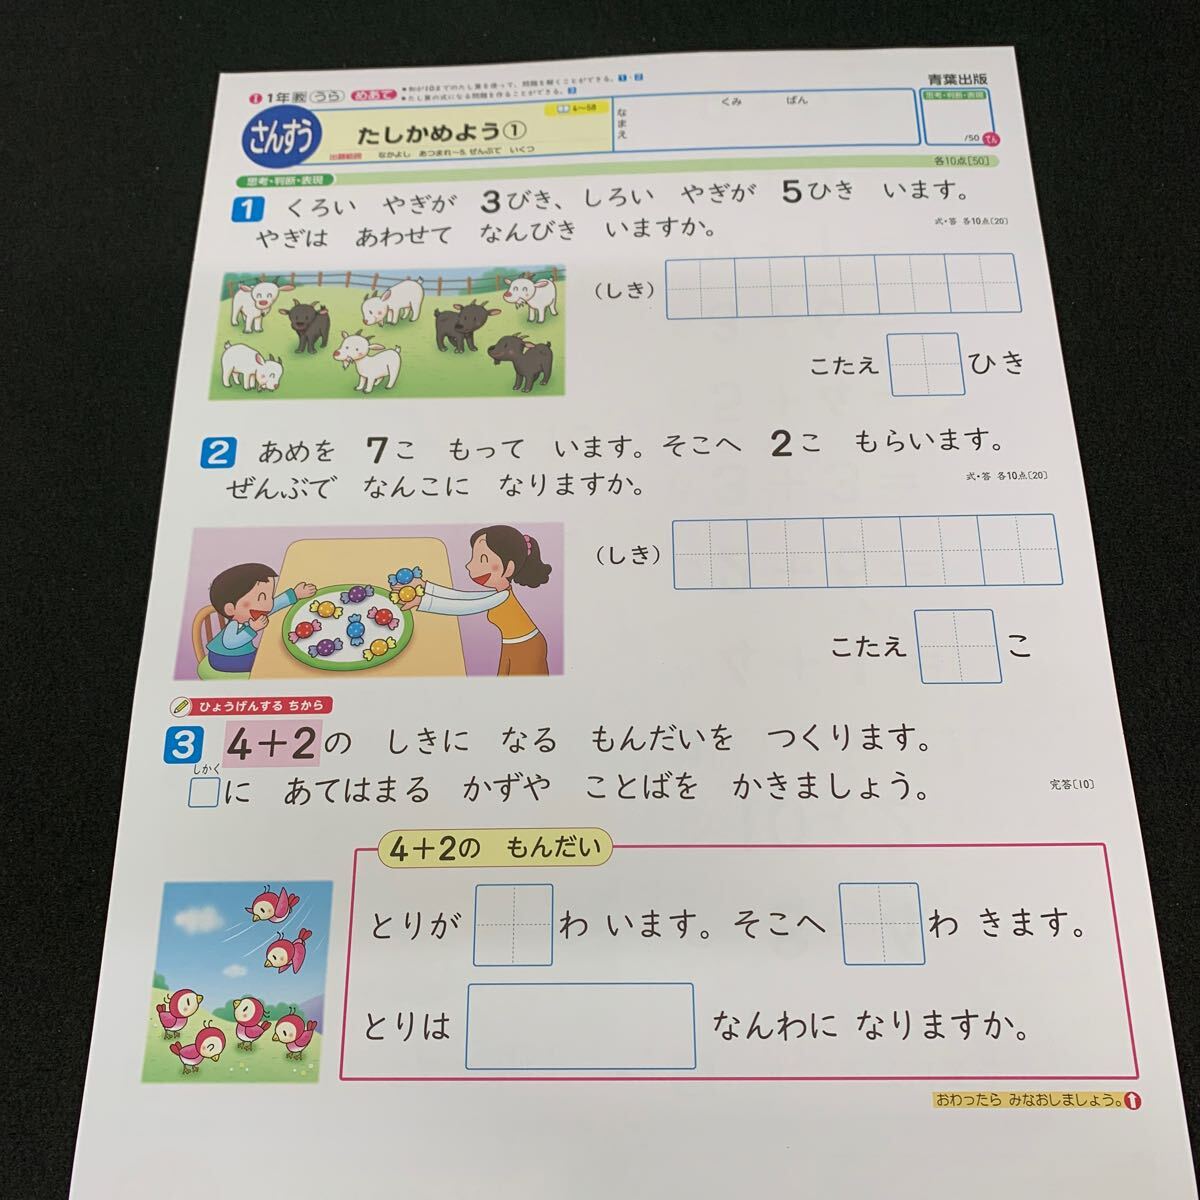 1年 教 うら めあて
●和が10までのたし算を使って、問題を解くことができる。1・2
●たし算の式になる問題を作ることができる。3
青葉出版
さんすう
たしかめよう①
4〜58
出題範囲 なかよし あつまれ〜5.ぜんぶで いくつ
なまえ
くみ ばん
思考・判断・表現
/50 てん
思考・判断・表現
各10点[50]
1 くろい やぎが 3びき、しろい やぎが 5ひき います。
やぎは あわせて なんびき いますか。
式・答 各10点[20]
(しき)
こたえ ひき
2 あめを 7こ もって います。そこへ 2こ もらいます。
ぜんぶで なんこに なりますか。
式・答 各10点[20]
(しき)
こたえ こ
ひょうげんする ちから
3 4+2の しきに なる もんだいを つくります。
しかく
□に あてはまる かずや ことばを かきましょう。
完答[10]
4+2の もんだい
とりが わ います。そこへ わ きます。
とりは なんわに なりますか。
おわったら みなおしましょう。